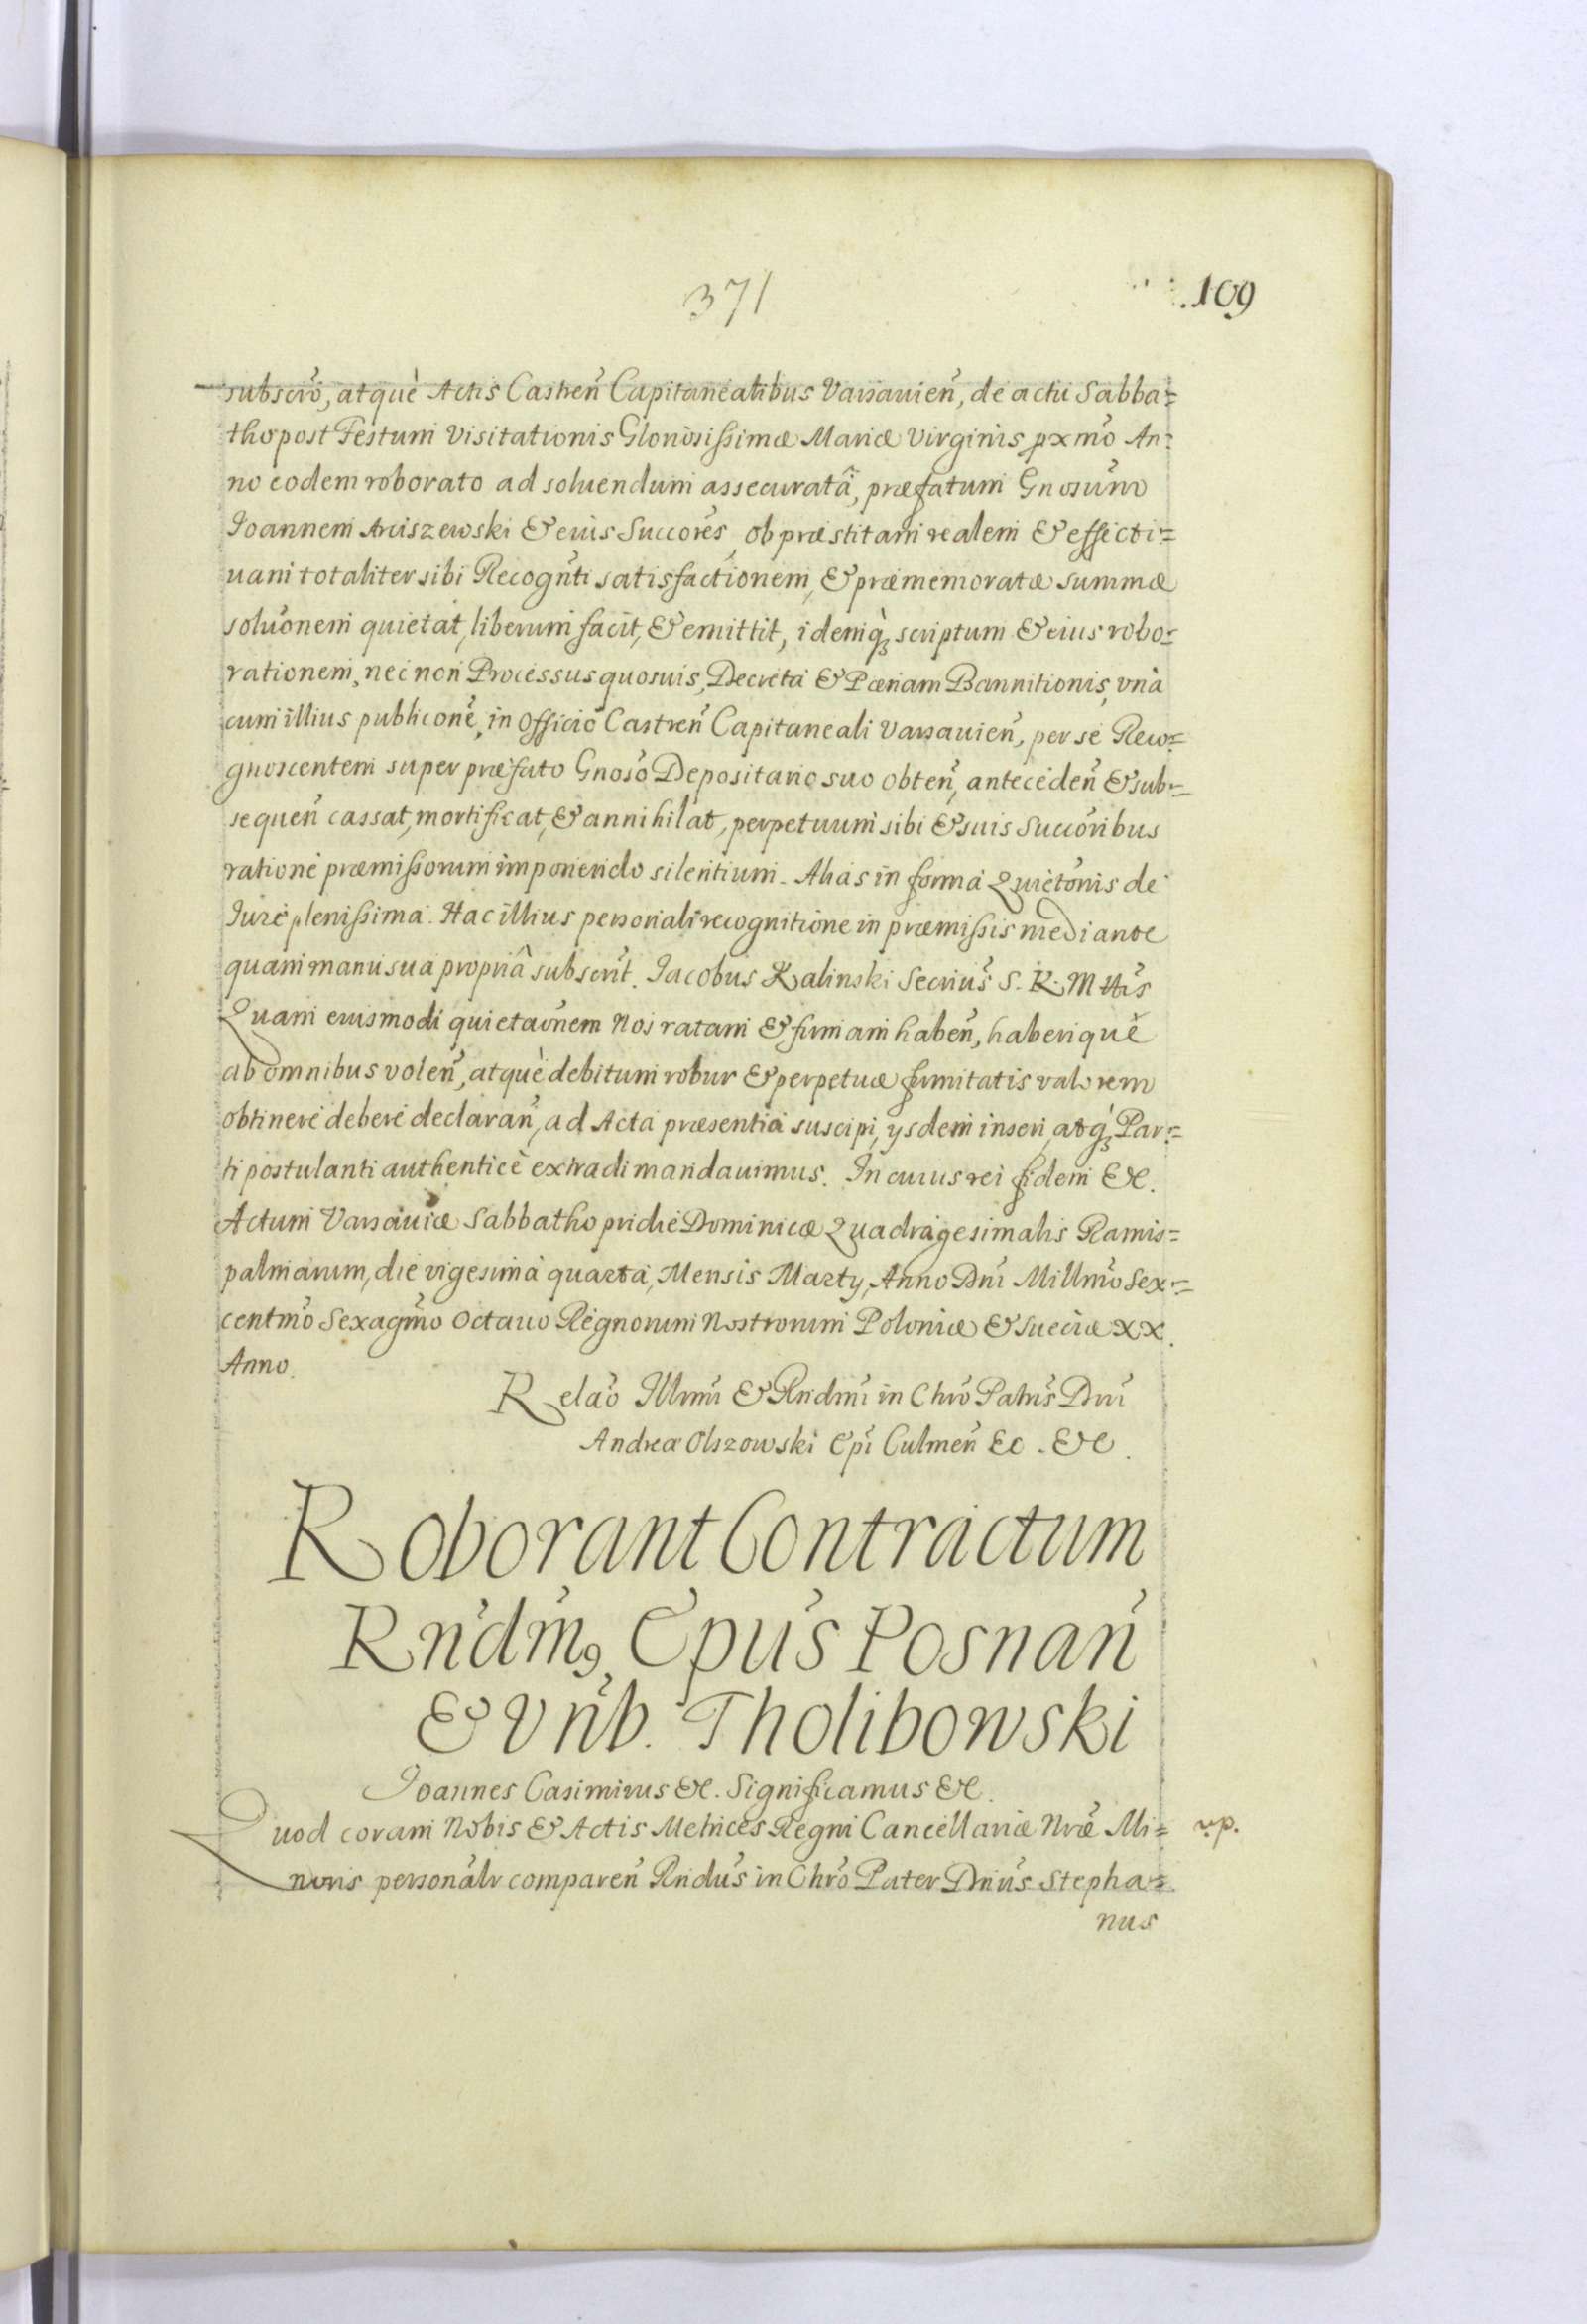 371
.109
subscro͂, atquè Actis Castren͂ Capitanealibus Varsauien͂, de actu Sabba=
tho post Festum Visitationis Gloriosissimæ Mariæ Virginis pxmo͂ An=
no eodem roborato ad soluendum assecuratâ, præfatum Gnosum͂
Joannem Arciszewski & eius Succores͂, ob præstitam realem & effecti=
uam totaliter sibi Recogn͂ti satisfactionem, & præmemoratæ summæ
soluo͂nem quietat, liberum facit, & emittit, idemq̀ꝫ scriptum & eius robo=
rationem, nec non Processus quosuis, Decreta & Pœnam Bannitionis, vnà
cum illius publicone͂, in Officio Castren͂ Capitaneali Varsauien͂, per se Reco=
gnoscentem super præfato Gnoso͂ Depositario suo obten͂, anteceden͂ & sub=
sequen͂ cassat, mortificat, & annihilat, perpetuum sibi & suis Succo͂ribus
ratione præmissorum imponendo silentium. Alias in forma Quieto͂nis de
Jure plenissima. Hac illius personali recognitione in præmissis mediante
quam manu sua propriâ subscri͂t. Jacobus Kalinski Secrius͂ S. R. Mttis͂
Quam eiusmodi quietao͂nem Nos ratam & firmam haben͂, haberiquè
ab omnibus volen͂, atquè debitum robur & perpetuæ firmitatis valorem
obtinere debere declaran͂, ad Acta præsentia suscipi, ysdem inseri, atq̀ꝫ Par=
ti postulanti authenticè extradi mandauimus. In cuius rei fidem &c.
Actum Varsauiæ Sabbatho pridie Dominicæ Quadragesimalis Ramis=
palmarum, die vigesima quarta, Mensis Marty, Anno Dni͂ Millmo͂ Sex=
centmo͂ Sexagmo͂ Octauo Regnorum Nostrorum Poloniæ & Sueciæ XX.
Anno.
Relao͂ Illmi͂ & Rndmi͂ in Chro͂ Patris͂ Dni͂
Andreæ Olszowski Epi͂ Culmen͂ &c. &c.
Roborant Contractum
Rndm͂9 Epus͂ Posnan͂
& Vn͂b. Tholibowski
Joannes Casimirus &c. Significamus &c.
Quod coram Nobis & Actis Metrices Regni Cancellariæ Nræ͂ Mi=
noris persona͂lr comparen͂ Rndus͂ in Chro͂ Pater Dnus͂ Stepha=
nus